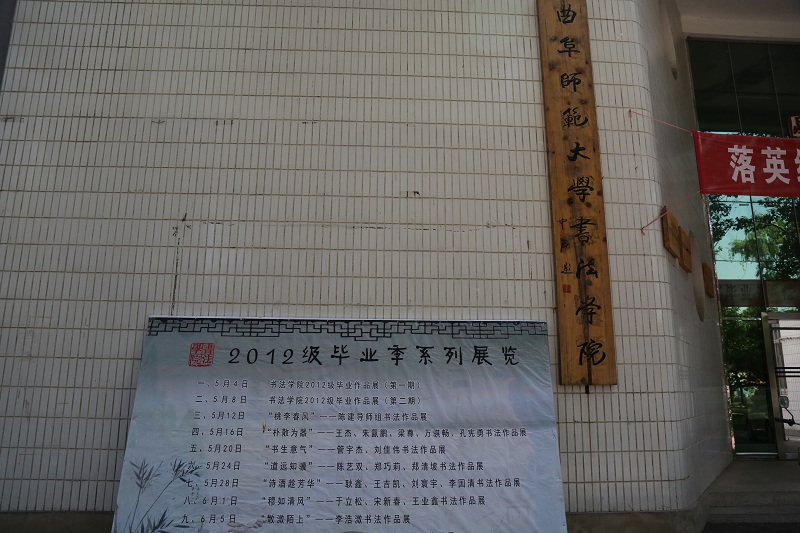 曲阜師範大學書法学院
落英
2012级毕业季系列展览
一、5月4日 书法学院2012级毕业作品展（第一期）
二、5月8日 书法学院2012级毕业作品展（第二期）
三、5月12日 “桃李春风”——陈建导师组书法作品展
四、5月16日 “朴散为器”——王杰、朱氤鹏、梁尊、万骐畅、孔宪勇书法作品展
五、5月20日 “书生意气”——管宇杰、刘佳伟书法作品展
六、5月24日 “道远知骥”——陈艺双、郑巧莉、郑清坡书法作品展
七、5月28日 “诗酒趁芳华”——耿鑫、王吉凯、刘寰宇、李国清书法作品展
八、6月1日 “穆如清风”——于立松、宋新春、王业鑫书法作品展
九、6月5日 “散漵陌上”——李浩漵书法作品展